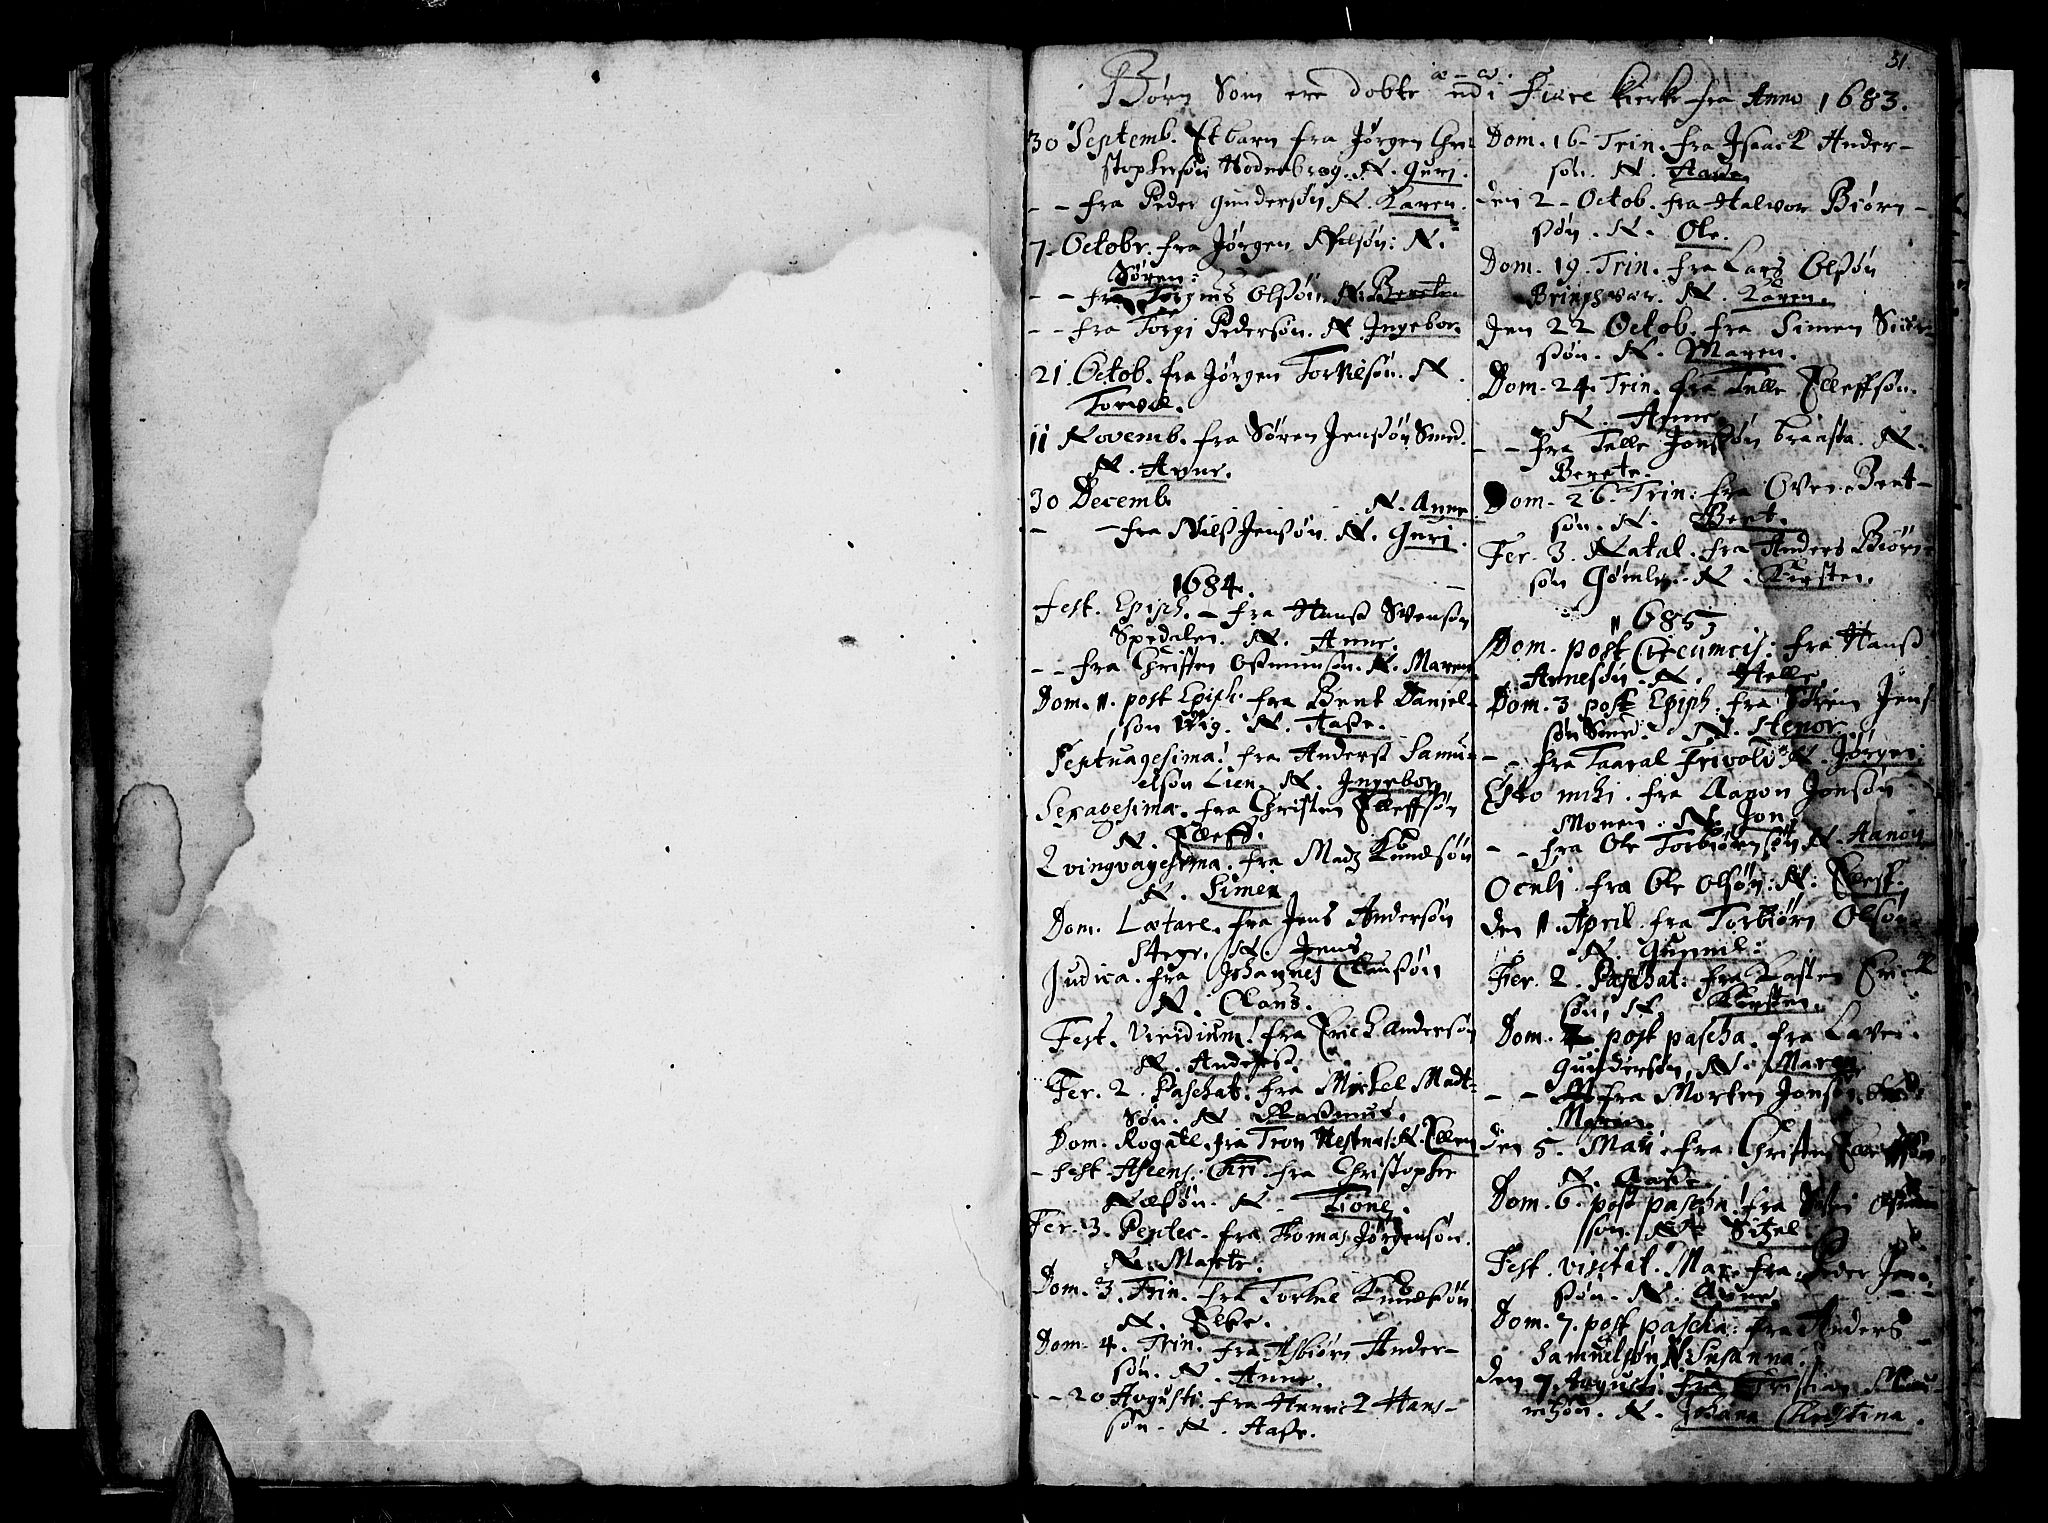 31
Børn Som ere dobte udi Fiære kierke fra Anno 1683.
30 Septemb. Et barn fra Jørgen Chri
stophersøn N. Guri.
- - fra Peder Gundersøn N. Karen.
7. Octobr. fra Jørgen Nilsøn: N.
Søren:
- - fra Olsøn. N. Berete
- - fra Torgi Pedersøn. N. Ingebor.
21. Octob. fra Jørgen N.
11 Novemb. fra Søren Jensøn Smed.
N. Anne.
30 Decemb. N. Anne
- - fra Nilss Jensøn. N. Guri.
1684.
Fest. Epiph. - fra Hans Svensøn
Spedalen. N. Anne.
- - fra Christen Osmunsøn. N. Maren
Dom. 1. post Epiph. fra Bent Daniel-
søn N. Aase.
Septuagesima! fra Anderss Samu-
elsøn Lien. N. Ingebor
Sexagesima. fra Christen Elleffsøn
N. Elleff.
Qvingvagesima. fra Madz Knudsøn
N. Simen
Dom. Lætare. fra Jens Andersøn
N. Jens
Judica. fra Johannes Claussøn
N. Claus.
Fest. Viridium! fra Erich Andersøn
N. Anderss.
Fer. 2. Paschat: fra Mickel Madt-
søn. N. Rasmus.
Dom. Rogate. fra Tron N. Ellen
- Fest. Ascens: Chri fra Christopher
Nelsøn. N.
Fer. 3. Pentec. fra Thomas Jørgensøn.
N. Marete.
Dom. 3. Trin. fra Torkel Knudsøn
N.
Dom. 4. Trin. fra Asbiørn Ander-
søn. N. Anne.
- - 20 Augusti. fra Henrick Hans-
søn. N. Aase.
Dom. 16. Trin. fra Isaack Ander-
søn. N.
den 2. Octob. fra Halvor Biørn-
søn. N. Ole.
Dom. 19. Trin. fra Lars Olsøn
N. Karen.
den 22 Octob. fra Simen
søn. N. Maren.
Dom. 24. Trin. fra Telle Elleffsøn.
N. Anne
- - fra Talle Jonsøn N.
Berete.
Dom. 26. Trin: fra Oven Bent-
søn. N. Bent.
Fer. 3. Natal. fra Anders Biørn-
søn N. Kirsten.
1685
Dom. post Circumcis: fra Hanss
Arnesøn. N. Helle
Dom. 3 post Epiph: fra Søren Jens
søn Smed. N.
- - fra Taaral N. Jørgen
Esto mihi. fra Aanon Jonsøn
Monen. N. Jon
- - fra Ole Torbiørnsøn N. Aanon
Oculi. fra Ole Olsøn: N: Ellef.
den 11. April. fra Torbiørn Olsøn
N.
Fer. 2. Paschat: fra Karsten Erick
søn. N. Kirsten.
Dom. post pascha. fra
Gundersøn. N. Maren
- - fra Morten Jonsøn
Maren.
den 5. Maii. fra Christen Elleffsøn.
N. Aase
Dom. 6. post pascha! fra
søn. N. Sitzel.
Fest. visitat. Mar. fra Peder Jen
søn. N. Anne
Dom. 7. post pascha: fra Anders
Samuelsøn N. Susanna.
den 7. Augusti fra Cristian
N. Johana Christina.